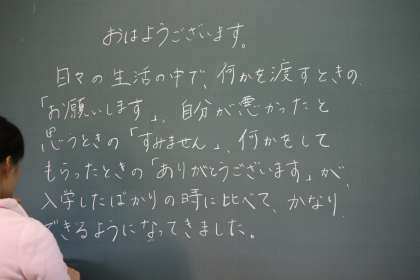 おはようございます。
日々の生活の中で、何かを渡すときの
「お願いします」、自分が悪かったと
思うときの「すみません」、何かをして
もらったときの「ありがとうございます」が、
入学したばかりの時に比べて、かなり
できるようになってきました。